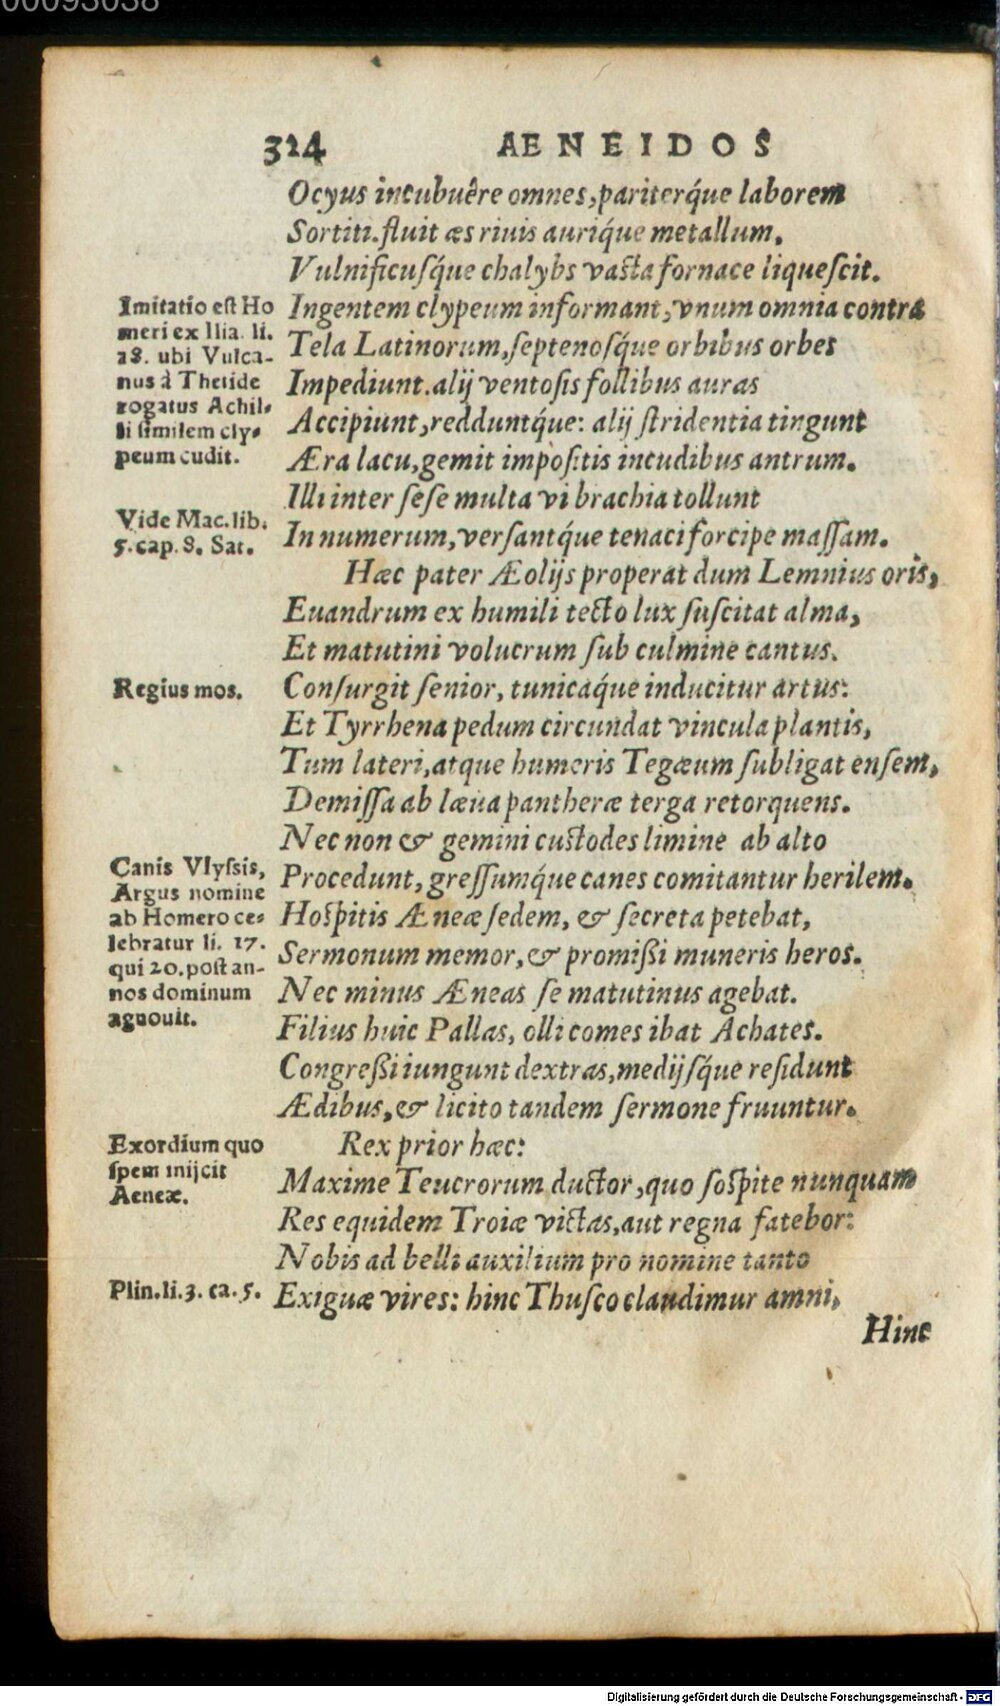 00093038
324 AENEIDOS
Ocyus incubuêre omnes, pariterq́ue laborem
Sortiti. fluit æs riuis auriq́ue metallum,
Vulnificuſq́ue chalybs vaſta fornace liqueſcit.
Imitatio eſt Ho
meri ex Ilia. li.
18. ubi Vulca-
nus à Thetide
rogatus Achil-
li ſimilem cly-
peum cudit.
Ingentem clypeum informant, vnum omnia contra
Tela Latinorum, ſeptenoſq́ue orbibus orbes
Impediunt. alij ventoſis follibus auras
Accipiunt, redduntq́ue: alij ſtridentia tingunt
Æra lacu, gemit impoſitis incudibus antrum.
Illi inter ſeſe multa vi brachia tollunt
Vide Mac. lib.
5. cap. 8. Sat.
In numerum, verſantq́ue tenaci forcipe maſſam.
Hæc pater Æolijs properat dum Lemnius oris,
Euandrum ex humili tecto lux ſuſcitat alma,
Et matutini volucrum ſub culmine cantus.
Regius mos.
Conſurgit ſenior, tunicaq́ue inducitur artus:
Et Tyrrhena pedum circundat vincula plantis,
Tum lateri, atque humeris Tegæum ſubligat enſem,
Demiſſa ab læua pantheræ terga retorquens.
Nec non & gemini cuſtodes limine ab alto
Canis Vlyſsis,
Argus nomine
ab Homero ce-
lebratur li. 17.
qui 20. poſt an-
nos dominum
agnouit.
Procedunt, greſſumq́ue canes comitantur herilem.
Hoſpitis Æneæ ſedem, & ſecreta petebat,
Sermonum memor, & promißi muneris heros.
Nec minus Æneas ſe matutinus agebat.
Filius huic Pallas, olli comes ibat Achates.
Congreßi iungunt dextras, medijſq́ue reſidunt
Ædibus, & licito tandem ſermone fruuntur.
Exordium quo
ſpem inijcit
Aeneæ.
Rex prior hæc:
Maxime Teucrorum ductor, quo ſoſpite nunquam
Res equidem Troiæ victas, aut regna fatebor:
Nobis ad belli auxilium pro nomine tanto
Plin. li. 3. ca. 5.
Exiguæ vires: hinc Thuſco claudimur amni,
Hinc
Digitalisierung gefördert durch die Deutsche Forschungsgemeinschaft - DFG